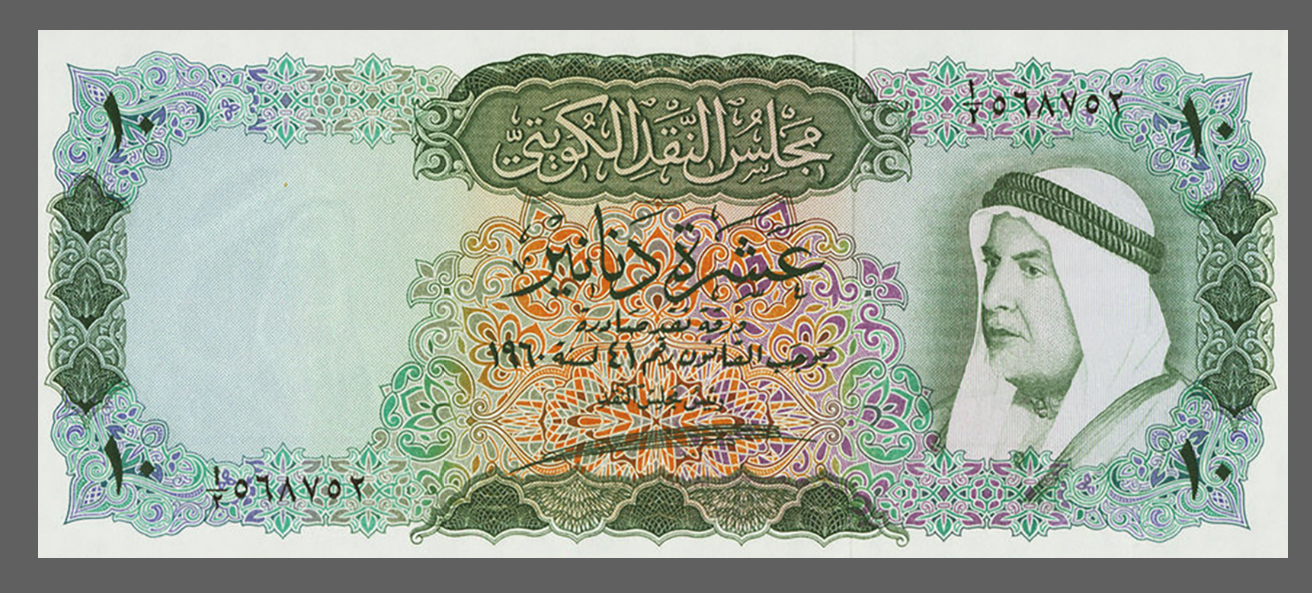 ١٠
مَجْلِسُ النَّقْدِ الكُوَيْتِيّ
١/٢ ٥٦٨٧٥٢
١٠
عَشَرَة دَنَانِيْر
ورقة نقد صادرة
بموجب القانون رقم ٤١ لسنة ١٩٦٠
رئيس مجلس النقد
١٠
١/٢ ٥٦٨٧٥٢
١٠